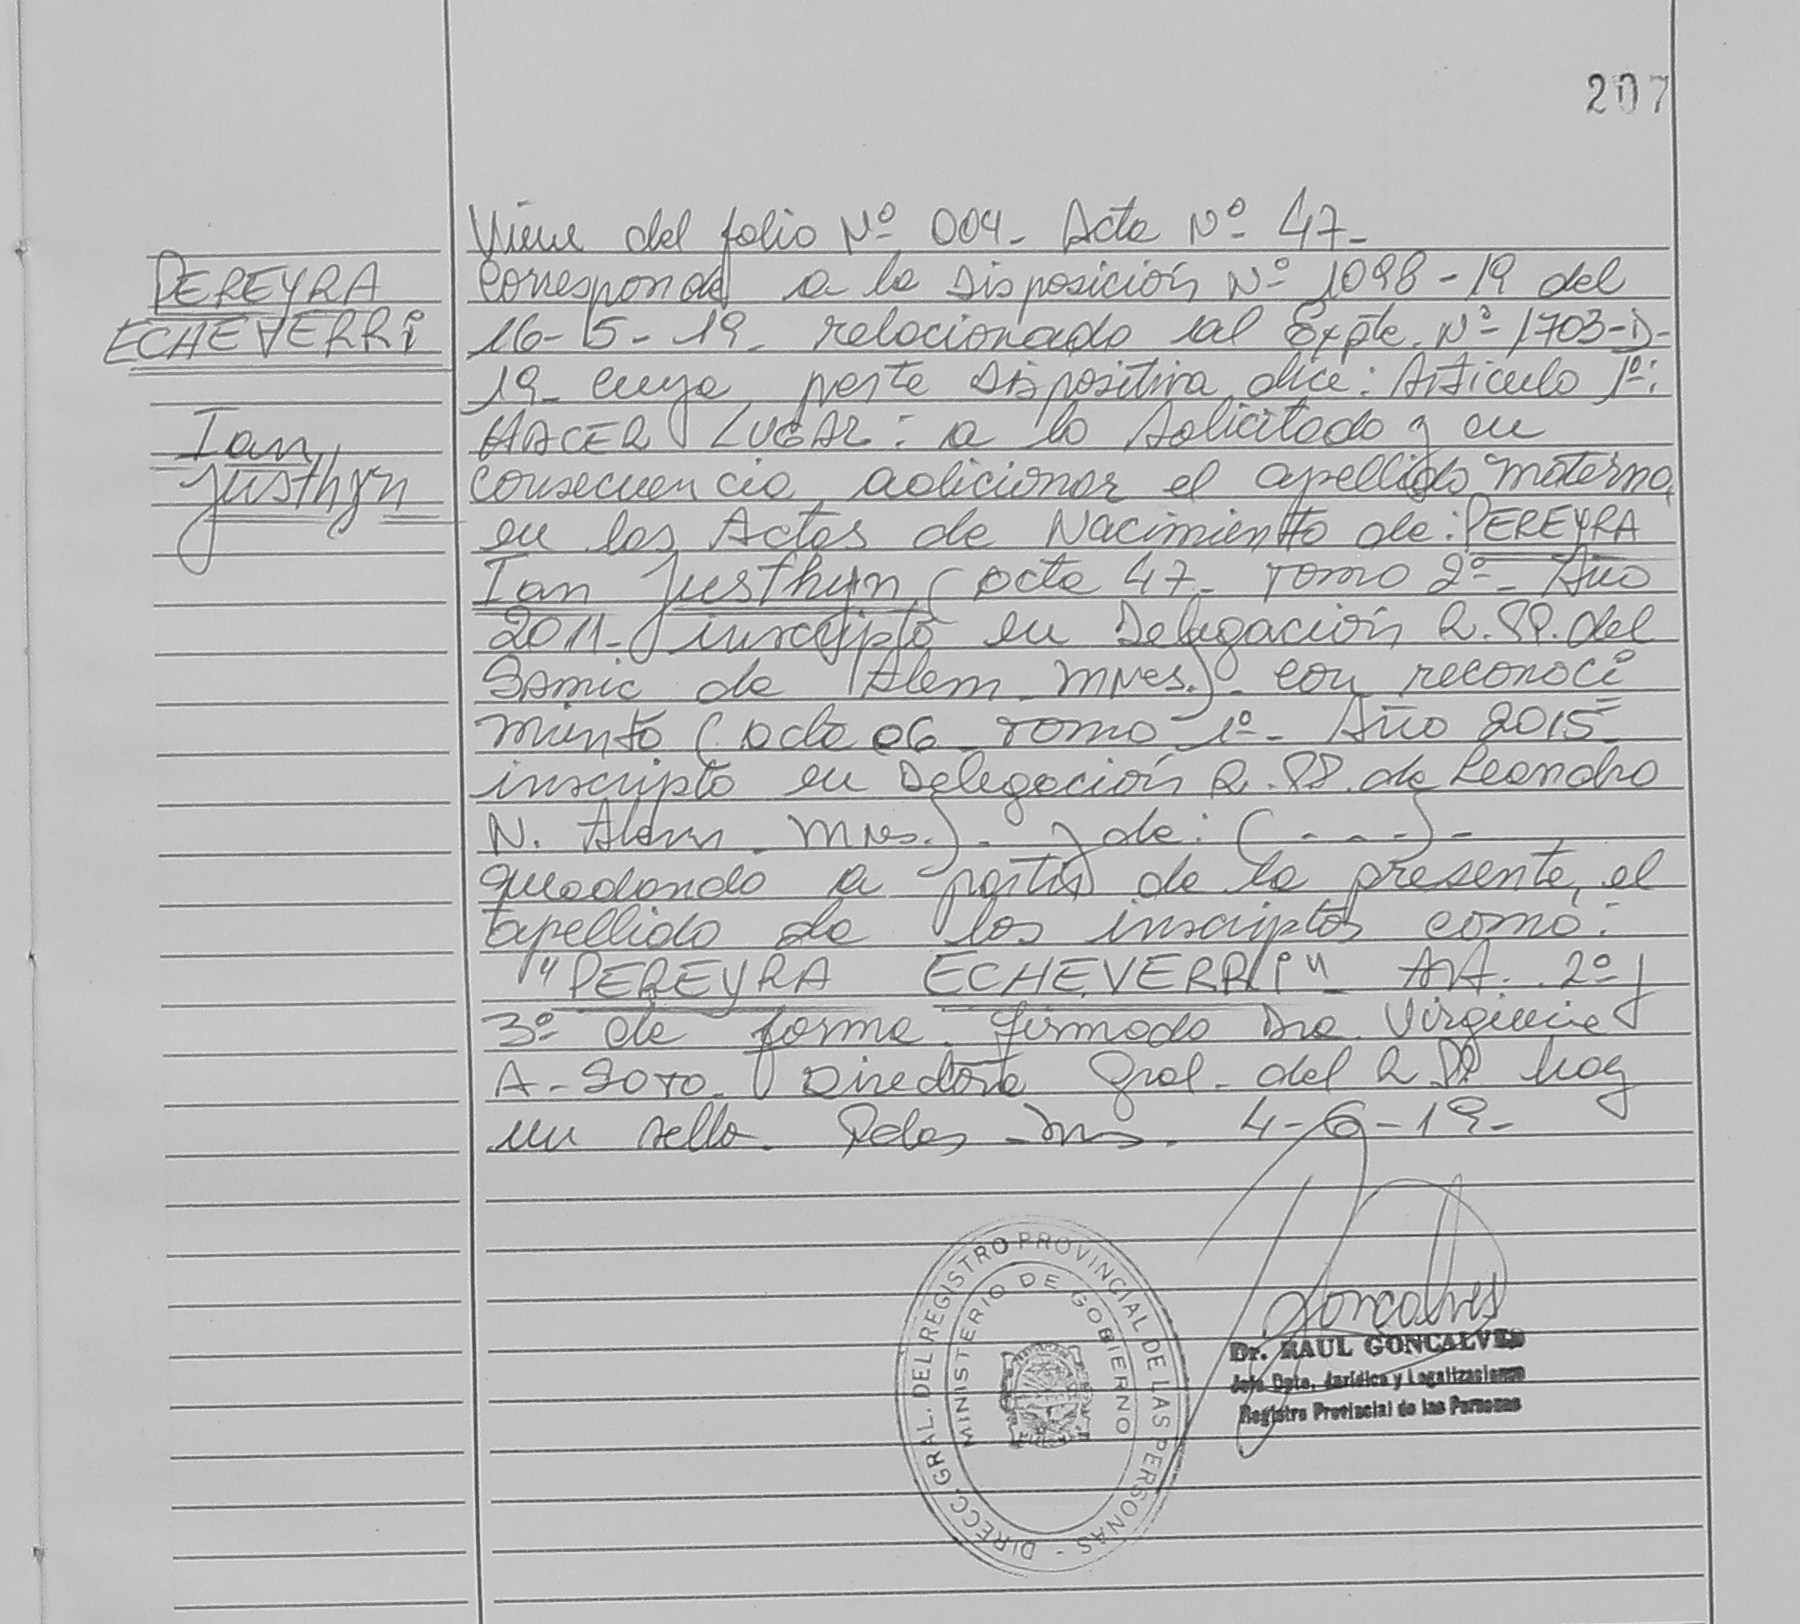 207
PEREYRA
ECHEVERRi
Ian
Justhyn
Viene del folio Nº 004- Acta Nº 47-
Corresponde a la Disposición Nº 1098-19 del
16-5-19- relacionado al Expte. Nº 1703-D-
19- cuya parte Dispositiva dice: Artículo 1º:
HACER LUGAR: a lo solicitado y en
consecuencia adicionar el apellido materno,
en las Actas de Nacimiento de: PEREYRA
Ian Justhyn (acta 47- Tomo 2º- Año
2011- inscripto en Delegación R.PP. del
Samic de Alem Mnes.)- con reconoci
miento (acta 06- Tomo 1º- Año 2015-
inscripto en Delegación R.PP. de Leandro
N. Alem - Mnes.)- y de: (----)-
quedando a partir de la presente, el
apellido de los inscriptos como:
"PEREYRA ECHEVERRi"- Art. 2º y
3º de forma. Firmado Dra Virginia
A- Soto. Directora Gral- del R PP hay
un sello. Pdas - Mns. 4-6-19-
DIRECC. GRAL. DEL REGISTRO PROVINCIAL DE LAS PERSONAS -
MINISTERIO DE GOBIERNO
Goncalves
Dr. RAUL GONCALVES
Jefe Dpto. Jurídica y Legalizaciones
Registro Provincial de las Personas